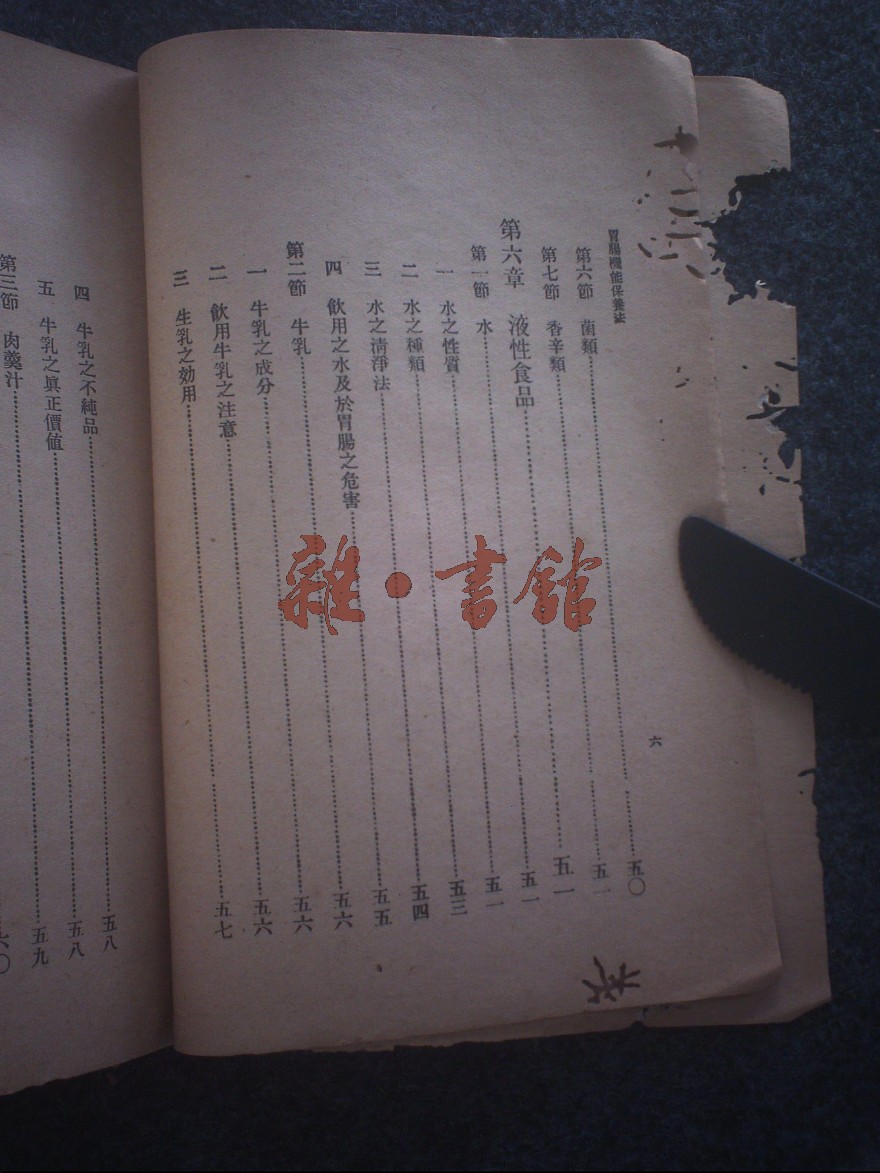 胃腸機能保養法
六
第六節 菌類…………五〇
第七節 香辛類…………五一
第六章 液性食品…………五一
第一節 水…………五一
一 水之性質…………五一
二 水之種類…………五三
三 水之清淨法…………五四
四 飲用之水及於胃腸之危害…………五五
第二節 牛乳…………五六
一 牛乳之成分…………五六
二 飲用牛乳之注意…………五六
三 生乳之効用…………五七
四 牛乳之不純品…………五八
五 牛乳之眞正價值…………五八
第三節 肉羹汁…………五九
六〇
雜·書館